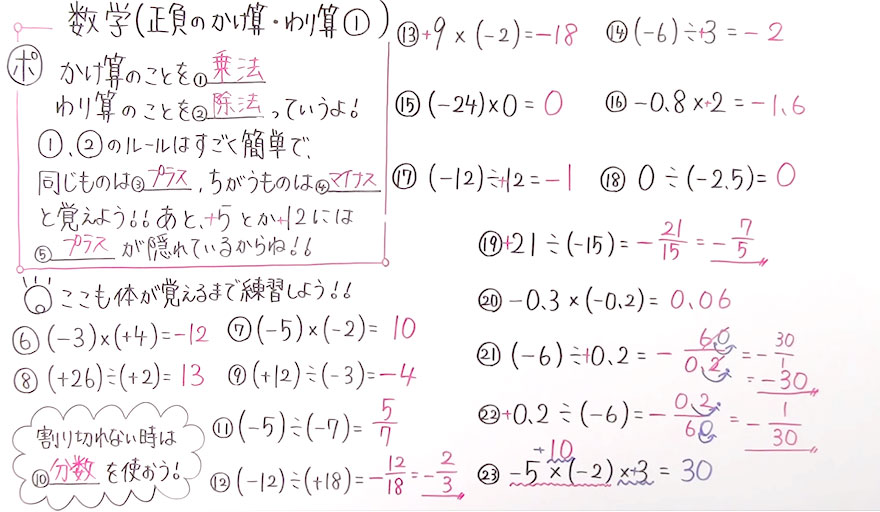 数学(正負のかけ算・わり算①)
ポ かけ算のことを①乗法
わり算のことを②除法っていうよ!
①、②のルールはすごく簡単で、
同じものは③プラス、ちがうものは④マイナス
と覚えよう!!あと、+5とか+12には
⑤プラスが隠れているからね!!
ここも体が覚えるまで練習しよう!!
⑥(-3)×(+4)=-12 ⑦(-5)×(-2)=10
⑧(+26)÷(+2)=13 ⑨(+12)÷(-3)=-4
割り切れない時は
⑩分数を使おう!
⑪(-5)÷(-7)=5/7
⑫(-12)÷(+18)=-12/18=-2/3
⑬+9×(-2)=-18 ⑭(-6)÷+3=-2
⑮(-24)×0=0 ⑯-0.8×+2=-1.6
⑰(-12)÷+12=-1 ⑱0÷(-2.5)=0
⑲+21÷(-15)=-21/15=-7/5
⑳-0.3×(-0.2)=0.06
㉑(-6)÷+0.2=-60/0.2=-30/1
=-30
㉒+0.2÷(-6)=-0.2/60=-1/30
+10
㉓-5×(-2)×+3=30